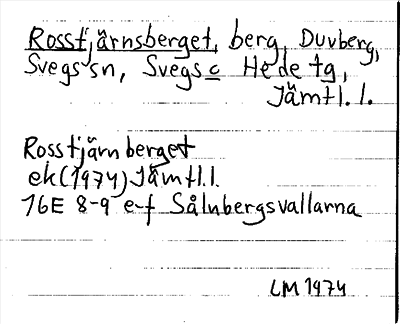 Rosstjärnsberget, berg, Duvberg,
Svegs sn, Svegs c Hede tg,
Jämtl. l.
Rosstjärnberget
ek(1974) Jämtl.l.
16E 8-9 e-f Sålnbergsvallarna
LM 1974